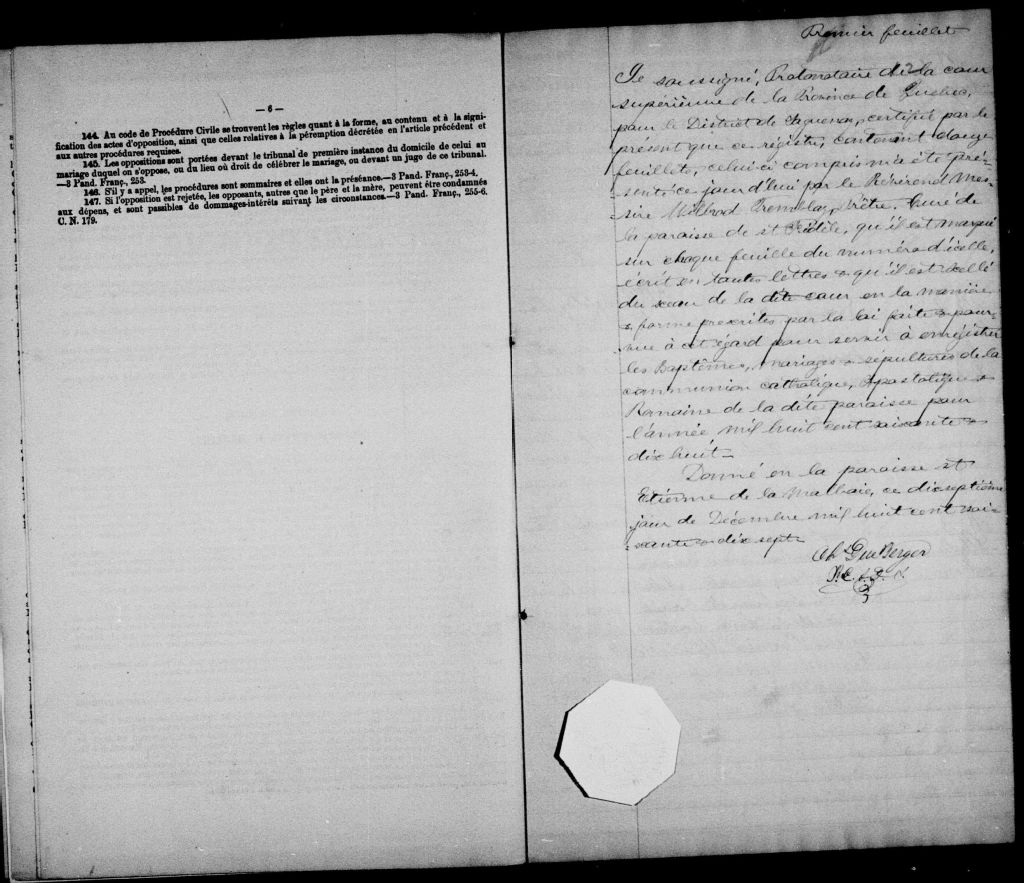 — 6 —
144. Au code de Procédure Civile se trouvent les règles quant à la forme, au contenu et à la signi-
fication des actes d'opposition, ainsi que celles relatives à la péremption décrétée en l'article précédent et
aux autres procédures requises.
145. Les oppositions sont portées devant le tribunal de première instance du domicile de celui au
mariage duquel on s'oppose, ou du lieu où droit de célébrer le mariage, ou devant un juge de ce tribunal.
—3 Pand. Franç., 253.
146. S'il y a appel, les procédures sont sommaires et elles ont la préséance.—3 Pand. Franç., 253-4.
147. Si l'opposition est rejetée, les opposants, autres que le père et la mère, peuvent être condamnés
aux dépens, et sont passibles de dommages-intérêts suivant les circonstances.—3 Pand. Franç., 255-6.
C. N. 179.
Premier feuillet
Je soussigné, Protonotaire de la cour
supérieure de la Province de Québec,
pour le District de certifie par le
présent que ce régistre, contenant douze
feuillets, celui-ci compris m'a été pré-
senté ce jour d'hui par le Révérend Mes-
sire Tremblay, Prêtre, Curé de
la paroisse de St Fidèle, qu'il est marqué
sur chaque feuille du numéro d'icelle,
écrit en toutes lettres & qu'il est scellé
du sceau de la dite cour en la manière
& forme prescrites par la loi faite & pour-
vue à cet égard pour servir à enrégistrer
les Baptêmes, mariages & sépultures de la
communion catholique, Apostolique &
Romaine de la dite paroisse pour
l'année mil huit cent soixante &
dix huit.
Donné en la paroisse St
Etienne de la Malbaie, ce dixseptième
jour de Décembre mil huit cent soi-
xante & dix sept.